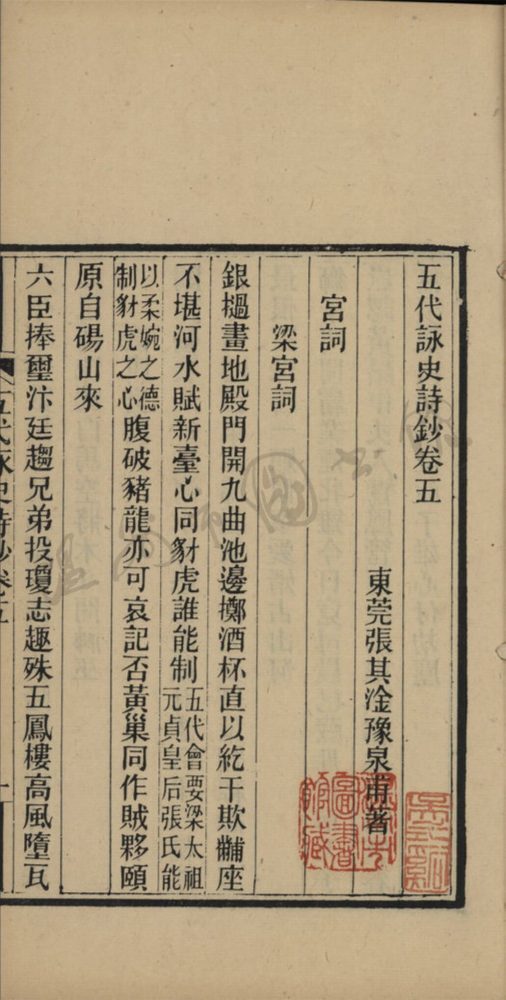 五代詠史詩鈔卷五
東莞張其淦豫泉甫著
宮詞
梁宮詞
銀撾畫地殿門開九曲池邊擲酒杯直以紇干欺黼座
不堪河水賦新臺心同豺虎誰能制五代會要梁太祖元貞皇后張氏能
以柔婉之德制豺虎之心腹破豬龍亦可哀記否黃巢同作賊夥頤
原自碭山來
六臣捧璽汴廷趨兄弟投瓊志趣殊五鳳樓高風墮瓦
五代詠史詩鈔卷五
一